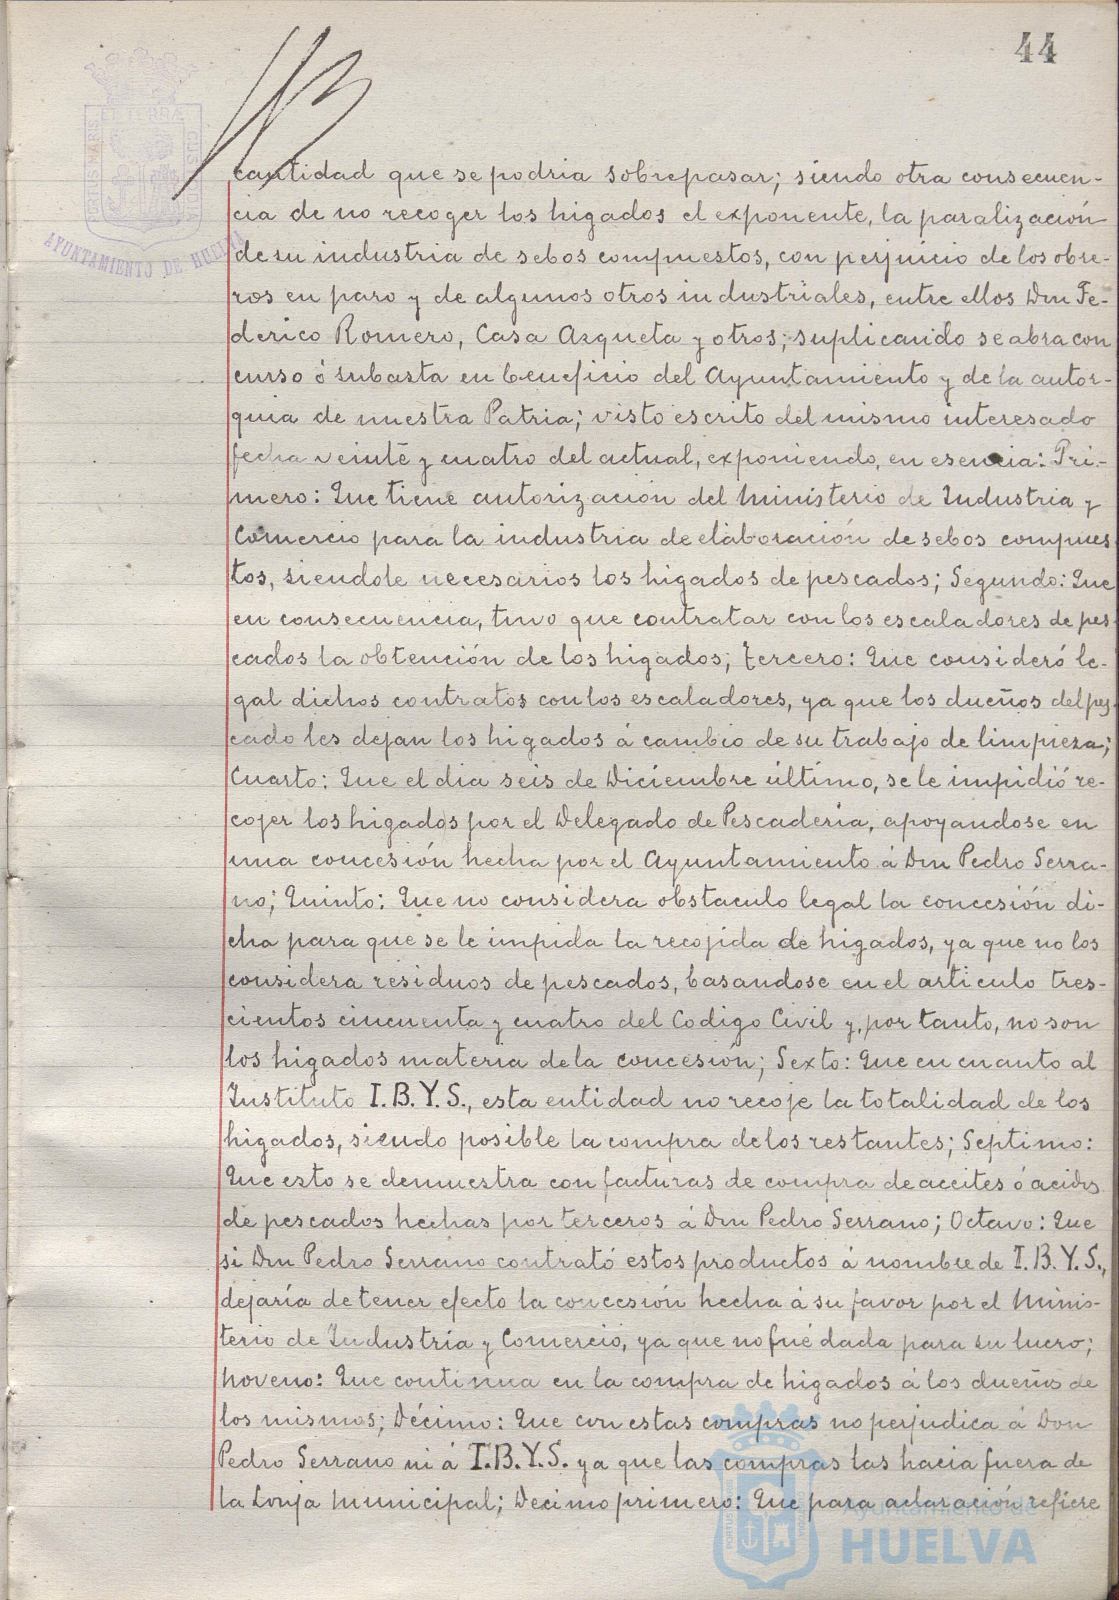 44
cantidad que se podria sobrepasar; siendo otra consecuen-
cia de no recoger los higados el exponente, la paralización
de su industria de sebos compuestos, con perjuicio de los obre-
ros en paro y de algunos otros industriales, entre ellos Don Fe-
derico Romero, Casa Azqueta y otros; suplicando se abra con
curso ó subasta en beneficio del Ayuntamiento y de la autar-
quia de nuestra Patria; visto escrito del mismo interesado
fecha veinte y cuatro del actual, exponiendo, en esencia: Pri-
mero: Que tiene autorización del Ministerio de Industria y
Comercio para la industria de elaboración de sebos compues
tos, siendole necesarios los higados de pescados; Segundo: Que
en consecuencia, tuvo que contratar con los escaladores de pes
cados la obtención de los higados; tercero: Que consideró le-
gal dichos contratos con los escaladores, ya que los dueños del pes
cado les dejan los higados á cambio de su trabajo de limpieza;
Cuarto: Que el dia seis de Diciembre último, se le impidió re-
cojer los higados por el Delegado de Pescaderia, apoyandose en
una concesión hecha por el Ayuntamiento á Don Pedro Serra-
no; Quinto: Que no considera obstaculo legal la concesión di-
cha para que se le impida la recojida de higados, ya que no los
considera residuos de pescados, basandose en el articulo tres-
cientos cincuenta y cuatro del Codigo Civil y, por tanto, no son
los higados materia de la concesión; Sexto: Que en cuanto al
Instituto I.B.Y.S., esta entidad no recoje la totalidad de los
higados, siendo posible la compra de los restantes; Septimo:
Que esto se demuestra con facturas de compra de aceites ó acidos
de pescados hechas por terceros á Don Pedro Serrano; Octavo: Que
si Don Pedro Serrano contrató estos productos á nombre de I.B.Y.S.,
dejaría de tener efecto la concesión hecha á su favor por el Minis-
terio de Industria y Comercio, ya que no fué dada para su lucro;
noveno: Que continua en la compra de higados á los dueños de
los mismos; Décimo: Que con estas compras no perjudica á Don
Pedro Serrano ni á I.B.Y.S. ya que las compras las hacia fuera de
la Lonja municipal; Decimo primero: Que para aclaración refiere
AYUNTAMIENTO DE HUELVA
Ayuntamiento de
HUELVA